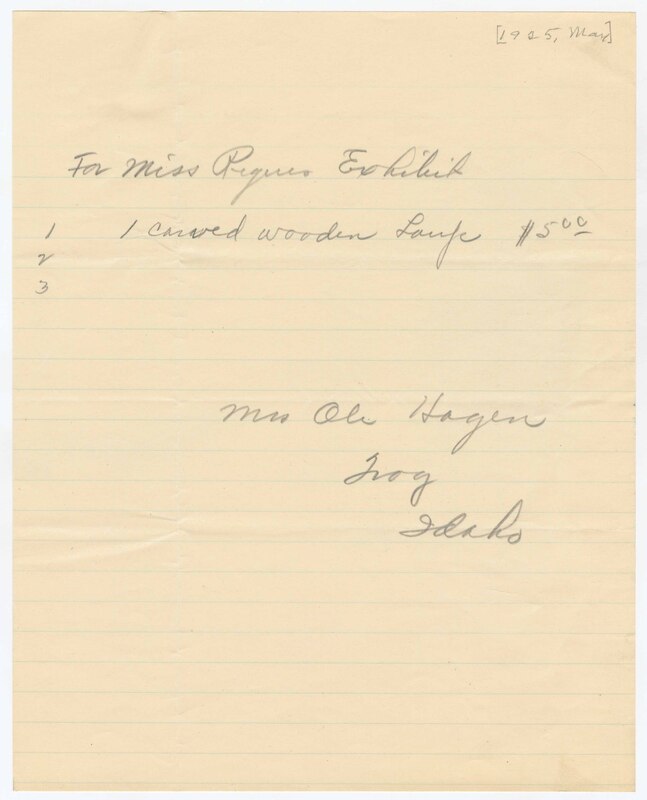 [1925, May]
For Miss Reques Exhibit
1 1 carved wooden $5.00
2
3
Mrs Ole Hagen
Troy
Idaho